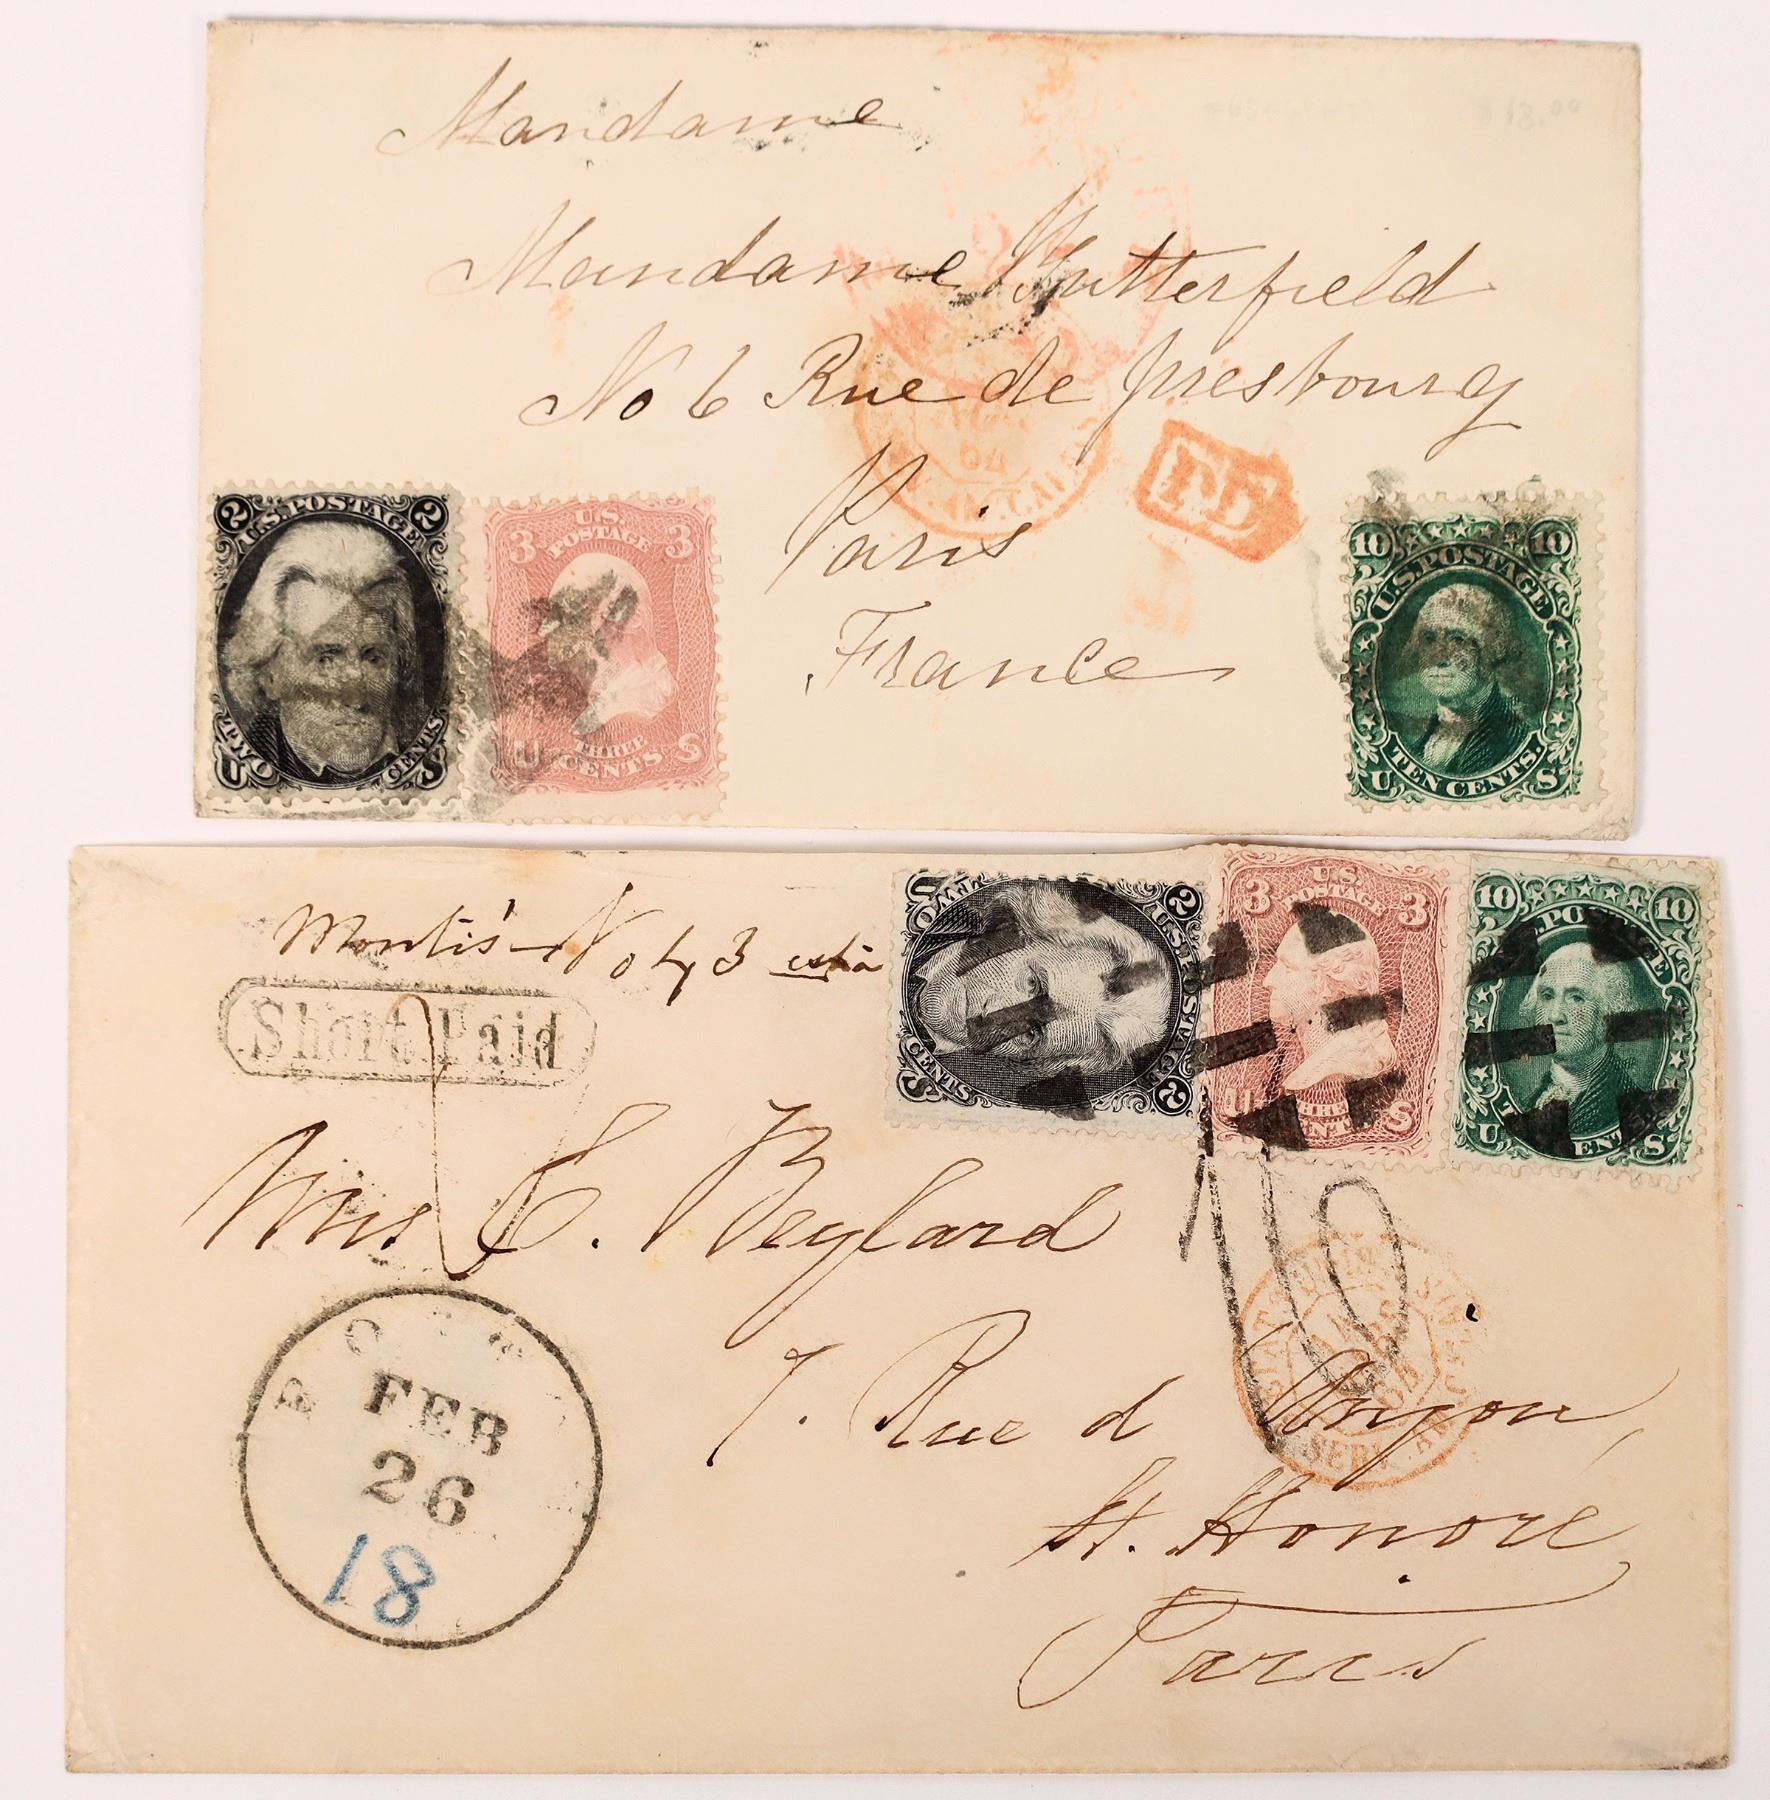 $18.00
Mandame
Mandame Butterfield
No 6 Rue de presbourg
Paris
France
PD
2 U.S. POSTAGE 2
U TWO CENTS S
U.S.
3 POSTAGE 3
U THREE CENTS S
10 10
U.S. POSTAGE
U TEN CENTS. S
No 43
Short Paid
Mrs C. Beylard
7. Rue d Anjou
St. Honoré
Paris
FEB
26
18
10
2 U.S. POSTAGE 2
U TWO CENTS S
U.S.
3 POSTAGE 3
U THREE CENTS S
10 10
U.S. POSTAGE
U TEN CENTS S